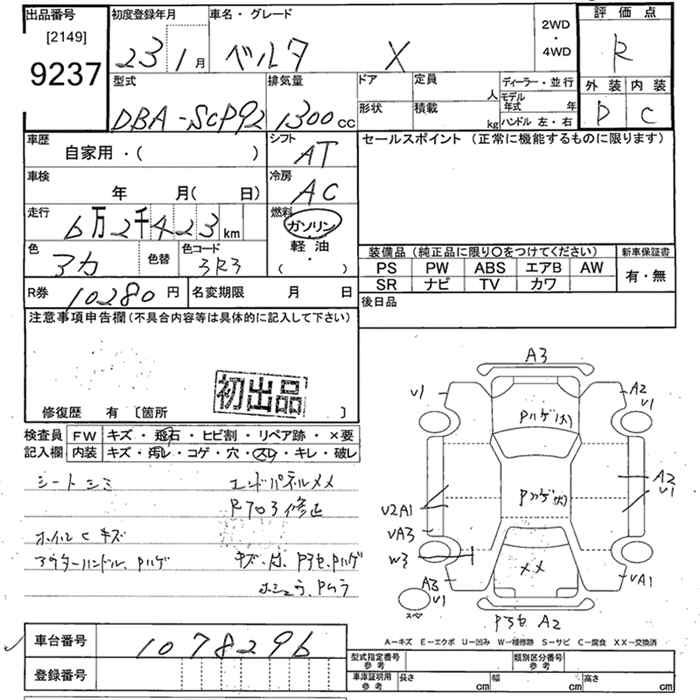 出品番号
[2149]
9237
初度登録年月
23 1月
車名・グレード
ベルタ X
2WD
・
4WD
評価点
R
外装 内装
D C
型式
DBA-SCP92
排気量
1300cc
ドア
定員
人
形状
積載
kg
ディーラー・並行
モデル
年式 年
ハンドル 左・右
車歴
自家用・( )
シフト
AT
セールスポイント (正常に機能するものに限ります)
車検
年 月( 日)
冷房
AC
走行
6万2千423km
燃料
ガソリン
軽油
( ・ )
色
アカ
色替
色コード
3R3
装備品 (純正品に限り○をつけてください)
新車保証書
PS PW ABS エアB AW
SR ナビ TV カワ
有・無
R券 10280円
名変期限 月 日
後日品
注意事項申告欄(不具合内容等は具体的に記入して下さい)
初出品
修復歴 有 〔箇所 〕
検査員
記入欄
FW キズ・飛石・ヒビ割・リペア跡・×要
内装 キズ・汚レ・コゲ・穴・スレ・キレ・破レ
シートシミ
エンドパネルメメ
ホイルCキズ
アウターハンドル、Pハゲ
A3
V1
A2
V1
Pハゲ(大)
Pハゲ(大)
V2A1
VA3
W3
A2
V1
メメ
A3
V1
VA1
スペ
Pヨセ A2
A−キズ E−エクボ U−凹み W−補修跡 S−サビ C−腐食 XX−交換済
車台番号
1078296
登録番号
型式指定番号
参考
類別区分番号
参考
車庫証明用
参考
長さ cm
幅 cm
高さ cm